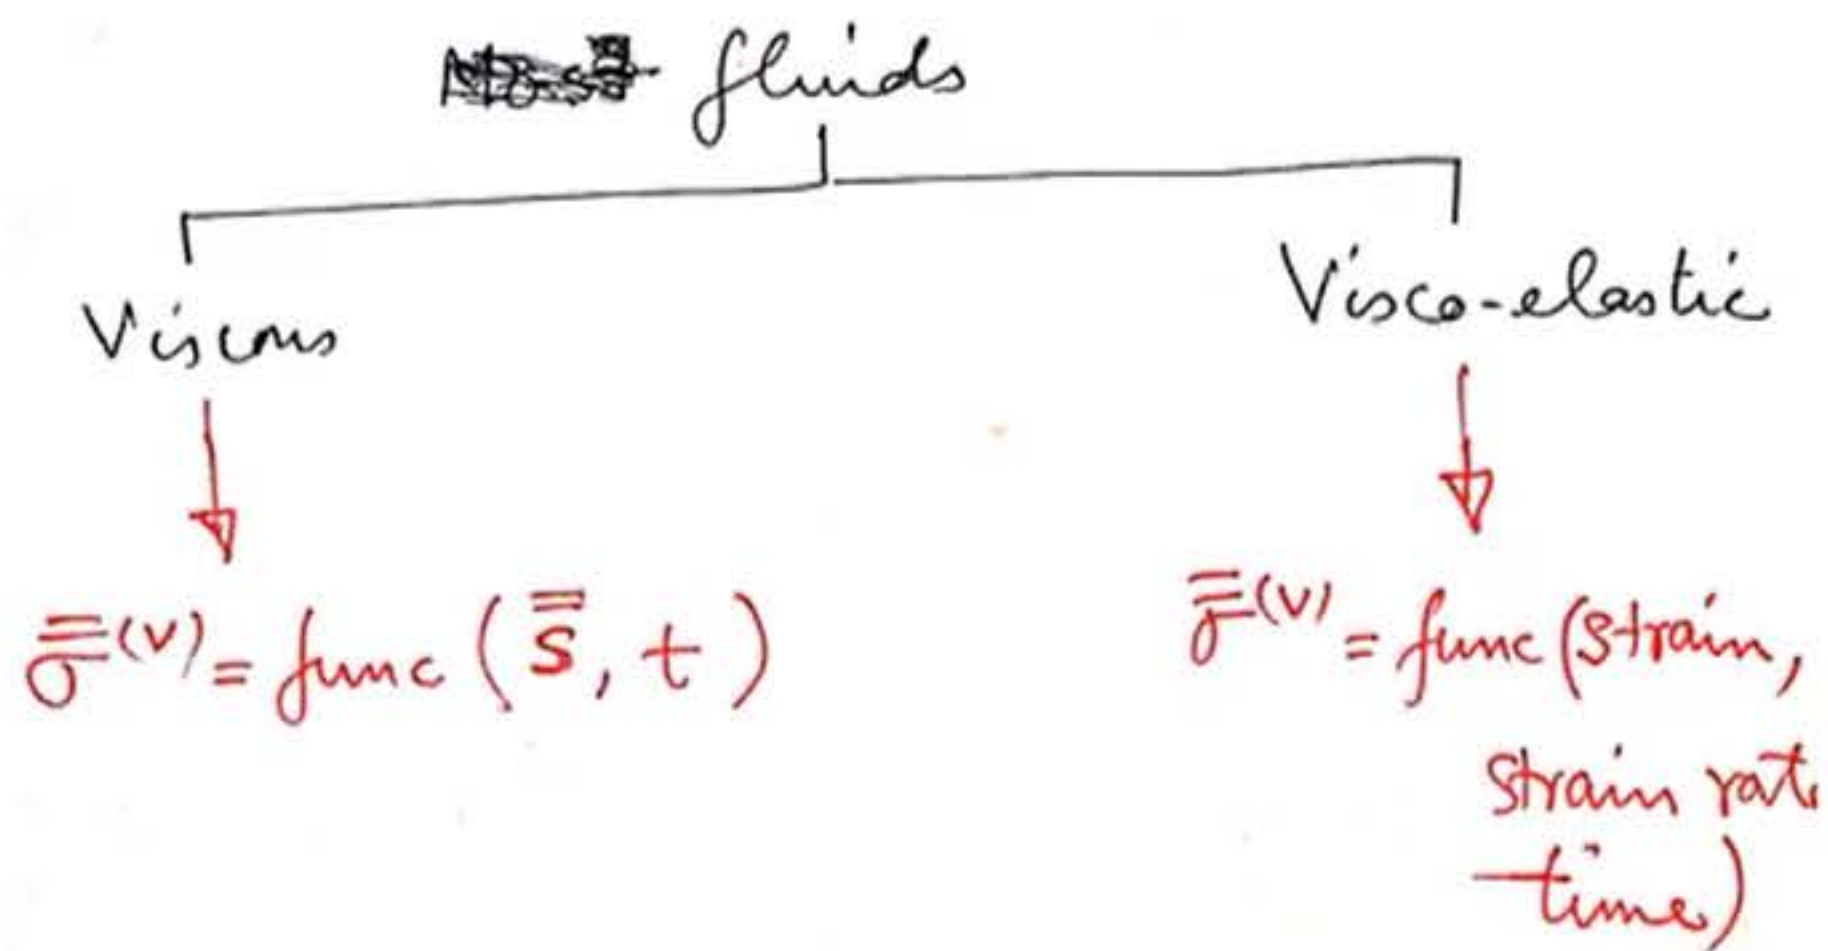 fluids
Viscous
Visco-elastic
σ̿⁽ᵛ⁾ = func ( s̿ , t )
σ̿⁽ᵛ⁾ = func (strain,
strain rat
time)